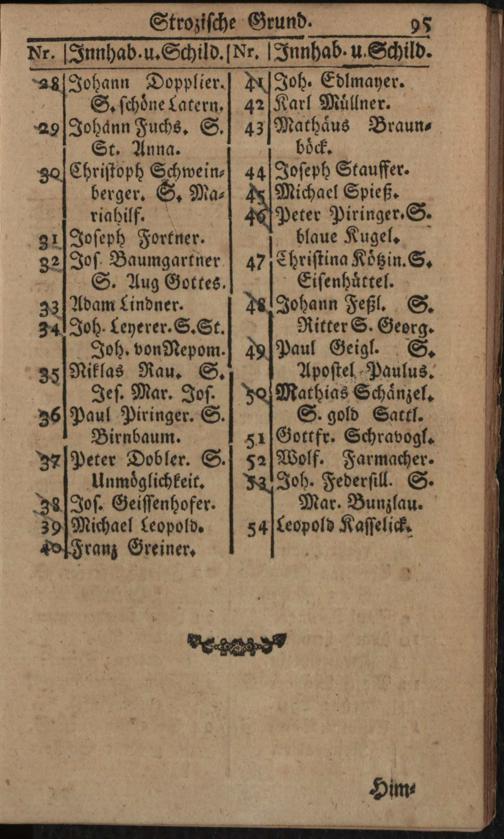 Strozische Grund. 95
Nr. Innhab. u. Schild.
28 Johann Dopplier.
S. schöne Latern.
29 Johann Fuchs. S.
St. Anna.
30 Christoph Schwein-
berger. S. Ma-
riahilf.
31 Joseph Fortner.
32 Jos. Baumgartner
S. Aug Gottes.
33 Adam Lindner.
34 Joh. Leyerer. S. St.
Joh. von Nepom.
35 Niklas Rau. S.
Jes. Mar. Jos.
36 Paul Piringer. S.
Birnbaum.
37 Peter Dobler. S.
Unmöglichkeit.
38 Jos. Geissenhofer.
39 Michael Leopold.
40 Franz Greiner.
Nr. Innhab. u. Schild.
41 Joh. Edlmayer.
42 Karl Müllner.
43 Mathäus Braun-
böck.
44 Joseph Stauffer.
45 Michael Spieß.
46 Peter Piringer. S.
blaue Kugel.
47 Christina Kötzin. S.
Eisenhüttel.
48 Johann Feßl. S.
Ritter S. Georg.
49 Paul Geigl. S.
Apostel Paulus.
50 Mathias Schänzel.
S. gold Sattl.
51 Gottfr. Schravogl.
52 Wolf. Farmacher.
53 Joh. Federsill. S.
Mar. Bunzlau.
54 Leopold Kasselick.
Him-